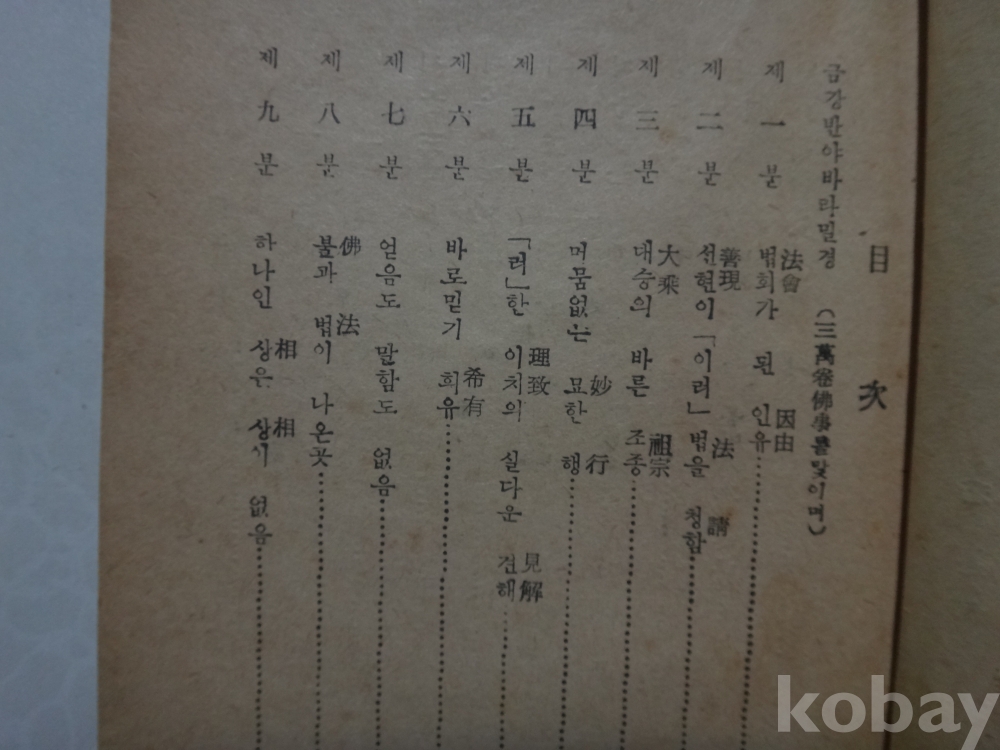 目次
금강반야바라밀경 (三萬卷佛事를맞이며)
제一분 법회가 된 인유 法會 因由
제二분 선현이 「이러」 법을 청함 善現 法 請
제三분 대승의 바른 조종 大乘 祖宗
제四분 머뭄없는 묘한 행 妙 行
제五분 「러」한 이치의 실다운 견해 理致 見解
제六분 바로믿기 희유 希有
제七분 얻음도 말함도 없음
제八분 불과 법이 나온곳 佛 法
제九분 하나인 상은 상이 없음 相 相
kobay